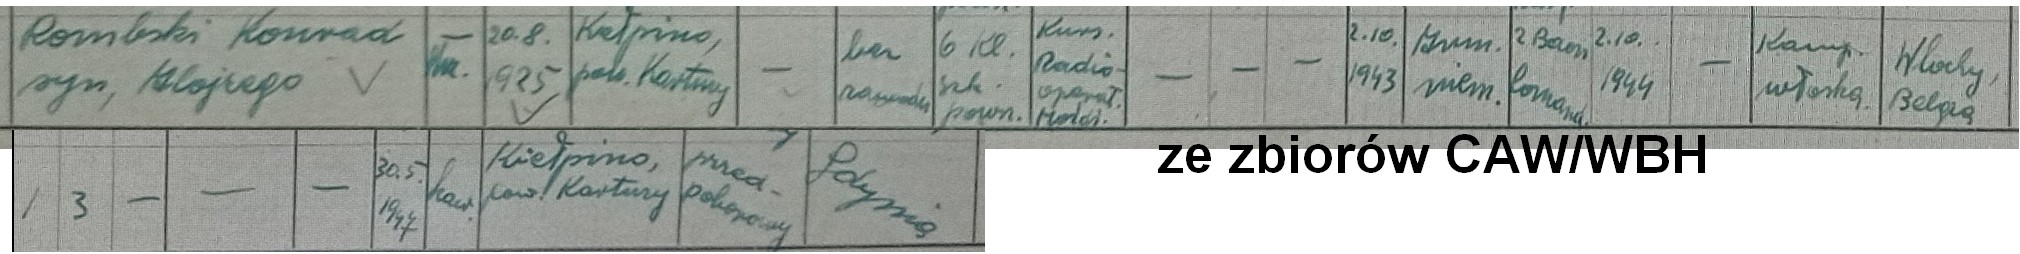 Rombski Konrad
syn, Alojzego
— 20.8. 1925
Kiełpino, pow. Kartuzy
—
bez zawodu
6 kl. szk. powsz.
Kurs. Radio- operat.
— — —
2.10. 1943
niem.
2 Baon Komand.
2.10. 1944
—
Kamp. włoska.
Włochy, Belgia
ze zbiorów CAW/WBH
1 3 — — — 30.5. 1947
kaw.
Kiełpino, pow. Kartuzy
przed- poborowy
Gdynia